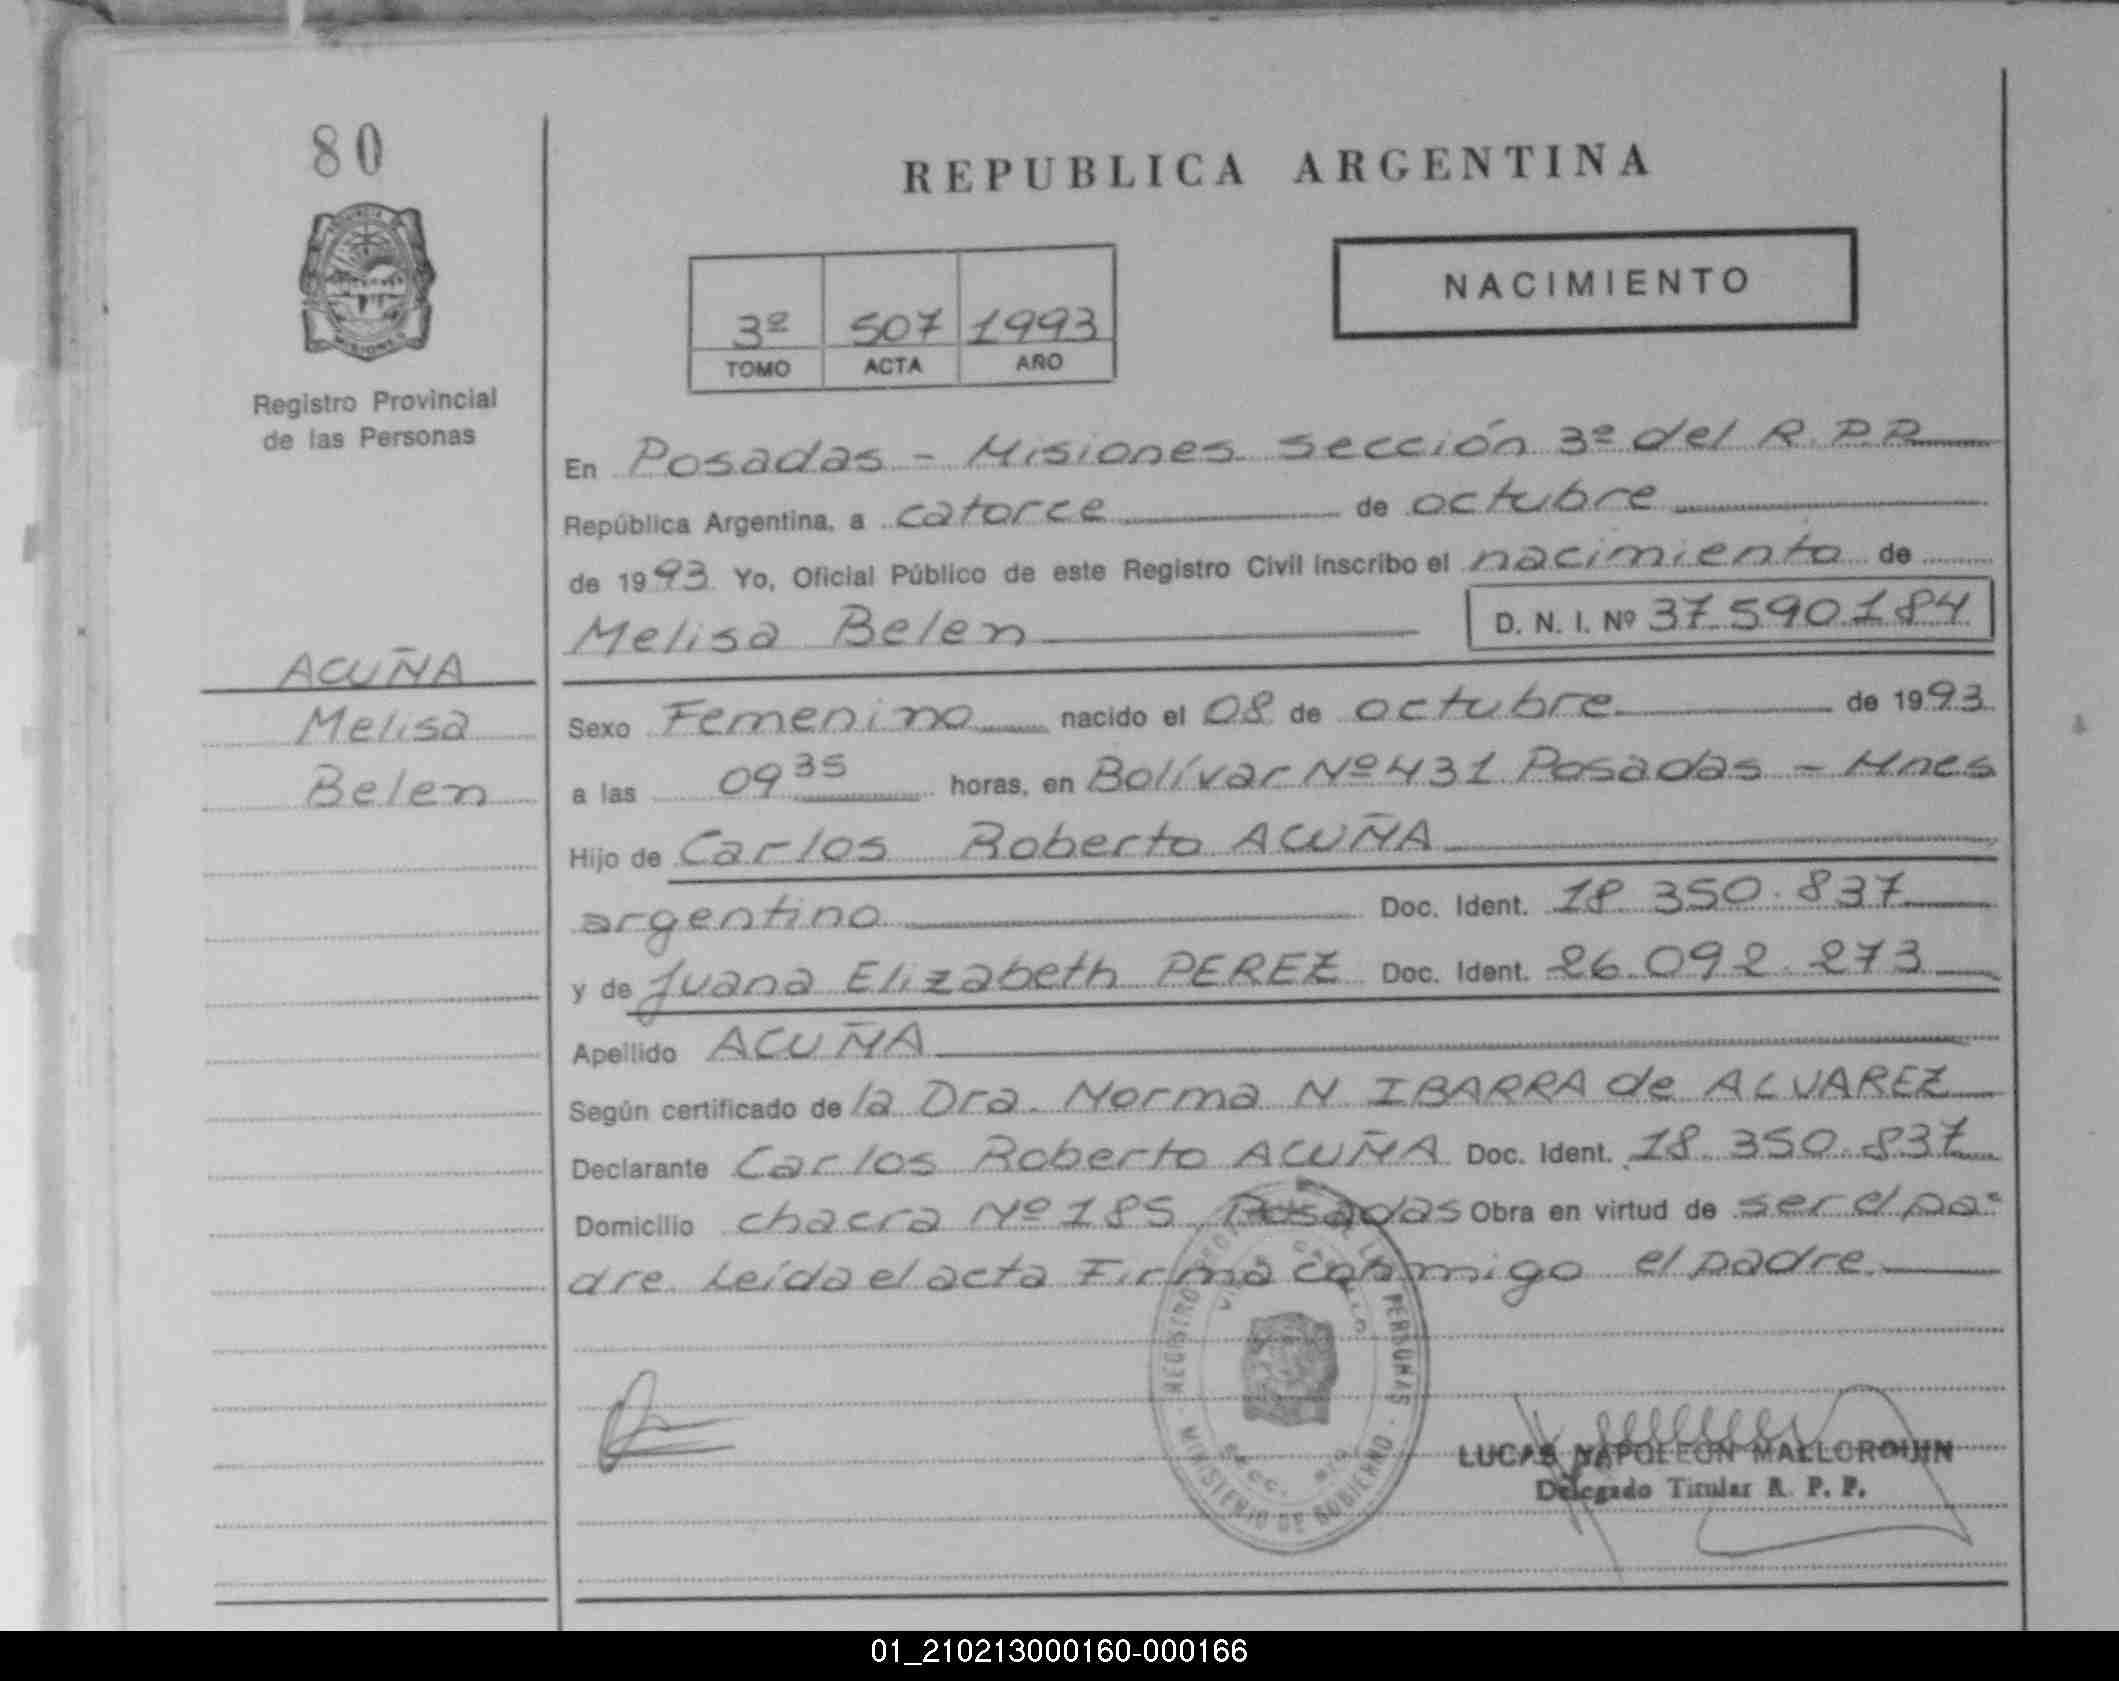 80
REPUBLICA ARGENTINA
NACIMIENTO
3º 507 1993
TOMO ACTA AÑO
Registro Provincial
de las Personas
En Posadas - Misiones Sección 3º del R.P.P.
República Argentina, a catorce de octubre
de 1993 Yo, Oficial Público de este Registro Civil inscribo el nacimiento de
Melisa Belen D. N. I. Nº 37590184
ACUÑA
Melisa
Belen
Sexo Femenino nacido el 08 de octubre de 1993
a las 09 35 horas, en Bolívar Nº 431 Posadas - Mnes
Hijo de Carlos Roberto ACUÑA
argentino Doc. Ident. 18.350.837
y de Juana Elizabeth PEREZ Doc. Ident. 26.092.273
Apellido ACUÑA
Según certificado de la Dra. Norma N. IBARRA de ALVAREZ
Declarante Carlos Roberto ACUÑA Doc. Ident. 18.350.837
Domicilio chacra Nº 185 Posadas Obra en virtud de ser el pa-
dre. Leída el acta Firma conmigo el padre
REGISTRO DE LAS PERSONAS
MINISTERIO DE GOBIERNO
LUCAS NAPOLEON MALLORQUIN
Delegado Titular R. P. P.
01_210213000160-000166